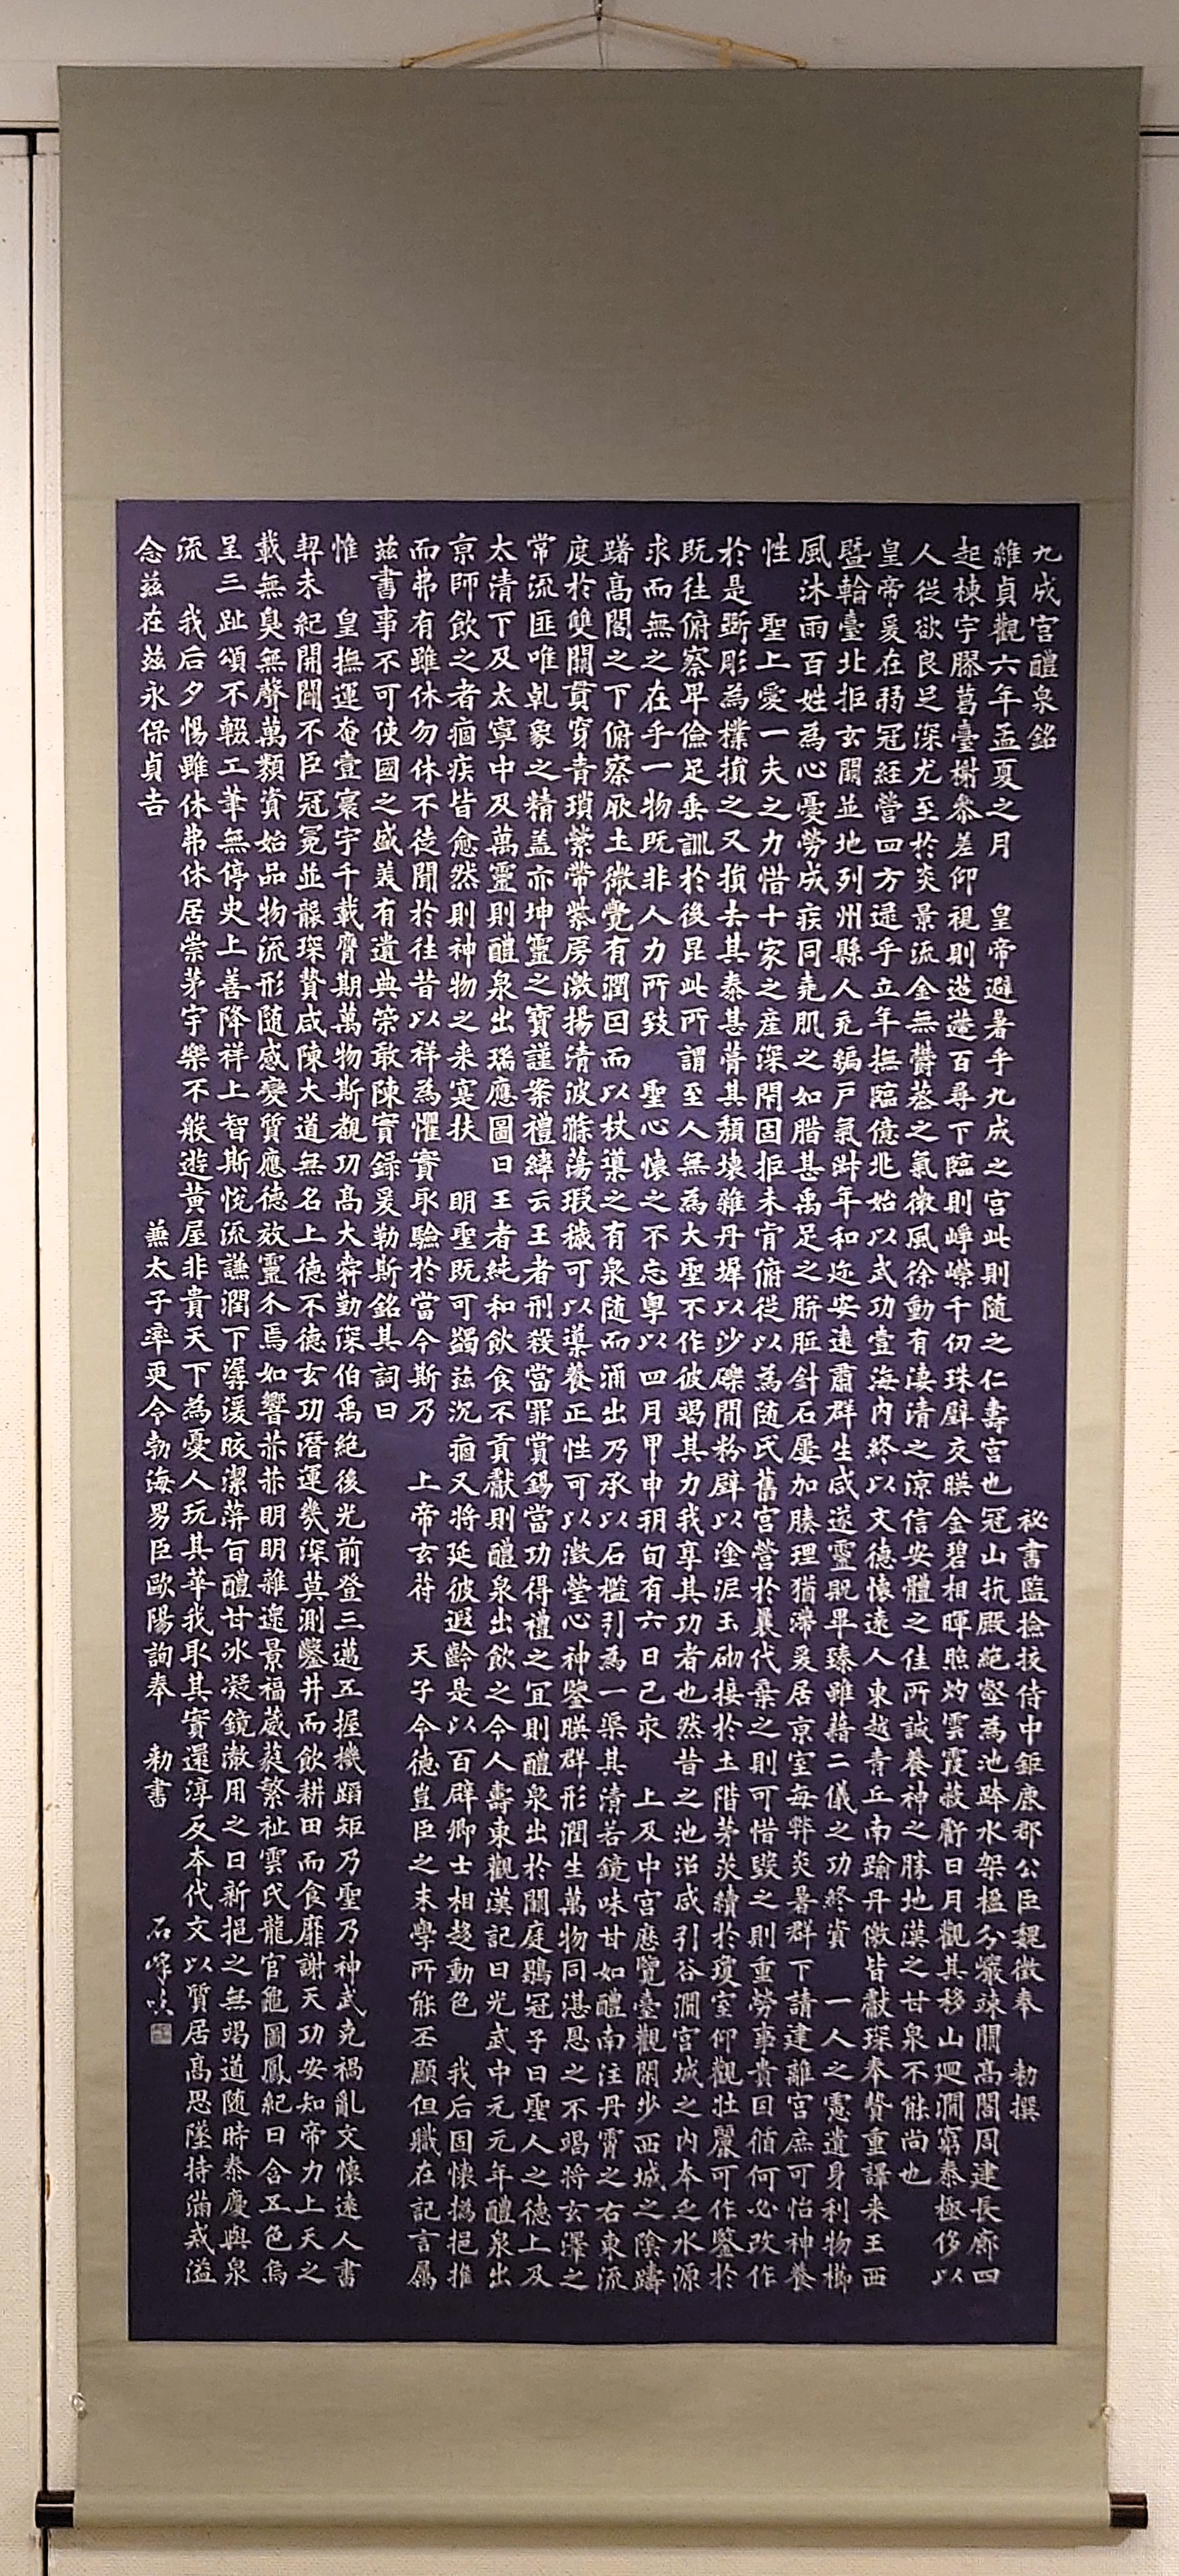 九成宮醴泉銘 秘書監撿挍侍中鉅鹿郡公臣魏徵奉 勅撰
維貞觀六年孟夏之月 皇帝避暑乎九成之宮此則隨之仁壽宮也冠山抗殿絕壑為池跨水架楹分巖竦闕高閣周建長廊四
起棟宇膠葛臺榭參差仰視則迢遰百尋下臨則崢嶸千仞珠璧交暎金碧相暉照灼雲霞蔽虧日月觀其移山迴澗窮泰極侈以
人從欲良足深尤至於炎景流金無鬱蒸之氣微風徐動有淒清之涼信安體之佳所誠養神之勝地漢之甘泉不能尚也
皇帝爰在弱冠經營四方逮乎立年撫臨億兆始以武功壹海內終以文德懷遠人東越青丘南踰丹徼皆獻琛奉贄重譯来王西
暨輪臺北拒玄闕並地列州縣人充編戶氣淑年和迩安遠肅群生咸遂靈貺畢臻雖藉二儀之功終資 一人之慮遺身利物櫛
風沐雨百姓為心憂勞成疾同堯肌之如腊甚禹足之胼胝針石屢加腠理猶滯爰居京室每弊炎暑群下請建離宮庶可怡神養
性 聖上愛一夫之力惜十家之產深閉固拒未肯俯從以為隨氏舊宮營於曩代棄之則可惜毀之則重勞事貴因循何必改作
於是斲彫為樸損之又損去其泰甚葺其頹壞雜丹墀以沙礫間粉壁以塗泥玉砌接於土階茅茨續於瓊室仰觀壯麗可作鑒於
既往俯察卑儉足垂訓於後昆此所謂至人無為大聖不作彼竭其力我享其功者也然昔之池沼咸引谷澗宮城之內本乏水源
求而無之在乎一物既非人力所致 聖心懷之不忘粵以四月甲申朔旬有六日己亥 上及中宮歷覽臺觀閑步西城之陰躊
躇高閣之下俯察厥土微覺有潤因而以杖導之有泉隨而涌出乃承以石檻引為一渠其清若鏡味甘如醴南注丹霄之右東流
度於雙闕貫穿青瑣縈帶紫房激揚清波滌蕩瑕穢可以導養正性可以澂瑩心神鑒暎群形潤生萬物同湛恩之不竭將玄澤之
常流匪唯乾象之精盖亦坤靈之寶謹案禮緯云王者刑殺當罪賞錫當功得禮之宜則醴泉出於闕庭鶡冠子曰聖人之德上及
太清下及太寧中及萬靈則醴泉出瑞應圖曰王者純和飲食不貢獻則醴泉出飲之令人壽東觀漢記曰光武中元元年醴泉出
京師飲之者痼疾皆愈然則神物之来寔扶 明聖既可蠲兹沉痼又將延彼遐齡是以百辟卿士相趨動色 我后固懷撝挹推
而弗有雖休勿休不徒聞於往昔以祥為懼實取驗於當今斯乃 上帝玄符 天子令德豈臣之末學所能丕顯但職在記言屬
兹書事不可使國之盛美有遺典策敢陳實録爰勒斯銘其詞曰
惟 皇撫運奄壹寰宇千載膺期萬物斯覩功高大舜勤深伯禹絕後光前登三邁五握機蹈矩乃聖乃神武克禍亂文懷遠人書
契未紀開闢不臣冠冕並襲琛贄咸陳大道無名上德不德玄功潛運幾深莫測鑿井而飲耕田而食靡謝天功安知帝力上天之
載無臭無聲萬類資始品物流形隨感變質應德效靈介焉如響赫赫明明雜遝景福葳蕤繁祉雲氏龍官龜圖鳳紀日含五色烏
呈三趾頌不輟工筆無停史上善降祥上智斯悅流謙潤下潺湲皎潔萍旨醴甘冰凝鏡澈用之日新挹之無竭道隨時泰慶與泉
流 我后夕惕雖休弗休居崇茅宇樂不般遊黃屋非貴天下為憂人玩其華我取其實還淳反本代文以質居高思墜持滿戒溢
念兹在兹永保貞吉 兼太子率更令勃海男臣歐陽詢奉 勅書